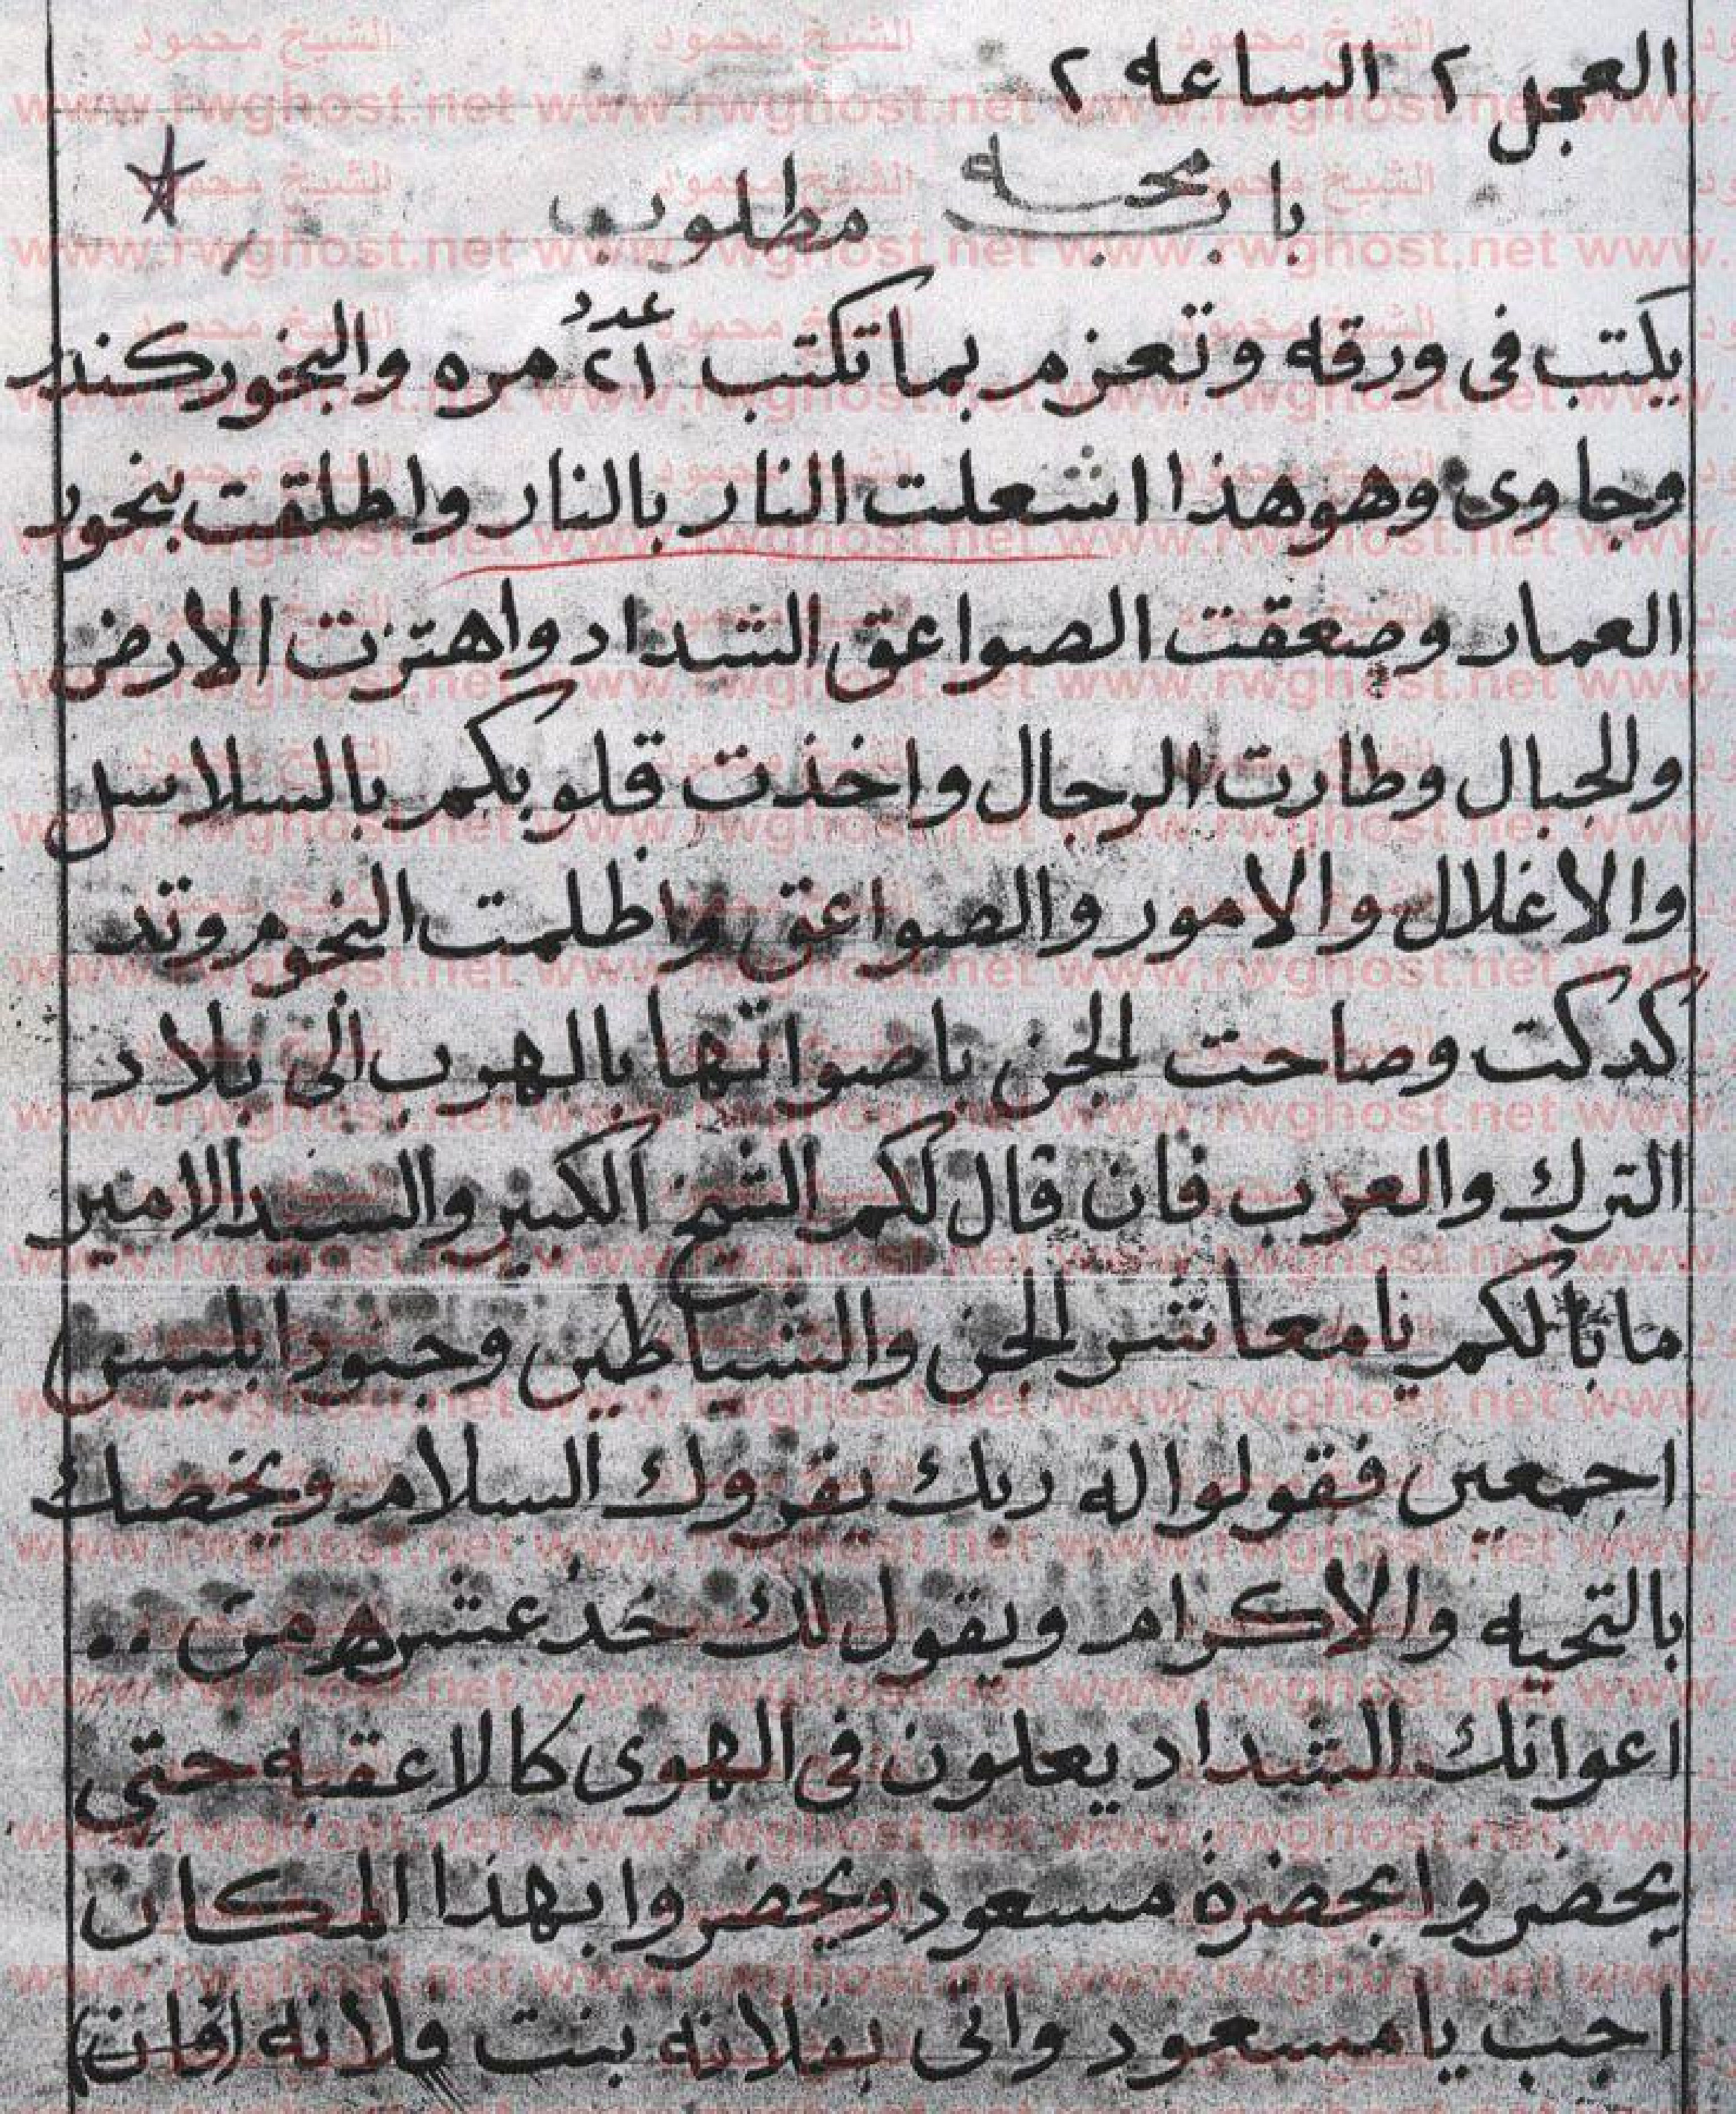 العجل ٢ الساعه ٢
باب محبه مطلوب
يكتب فى ورقه وتعزم بما تكتب عدد ٢١ مره والبخور كندر
وجاوى وهو هذا اشعلت النار بالنار واطلقت بخور
العمار وصعقت الصواعق الشداد واهتزت الارض
والجبال وطارت الرجال واخذت قلوبكم بالسلاسل
والاغلال والامور والصواعق واظلمت النجوم وتد
كدكت وصاحت الجن باصواتها بالهرب الى بلاد
الترك والعرب فان قال لكم الشيخ الكبير والسيد الامير
ما بالكم يا معاشر الجن والشياطين وجنود ابليس
اجمعين فقولوا له ربك يقروك السلام ويخصك
بالتحيه والاكرام ويقول لك خذ عشره من ..
اعوانك الشداد يعلون فى الهوى كالاعقبه حتى
يحضروا بحضرة مسعود ويحضروا بهذا المكان
اجب يا مسعود واتى بفلانه بنت فلانه (فان)
الشيخ محمود
www.rwghost.net